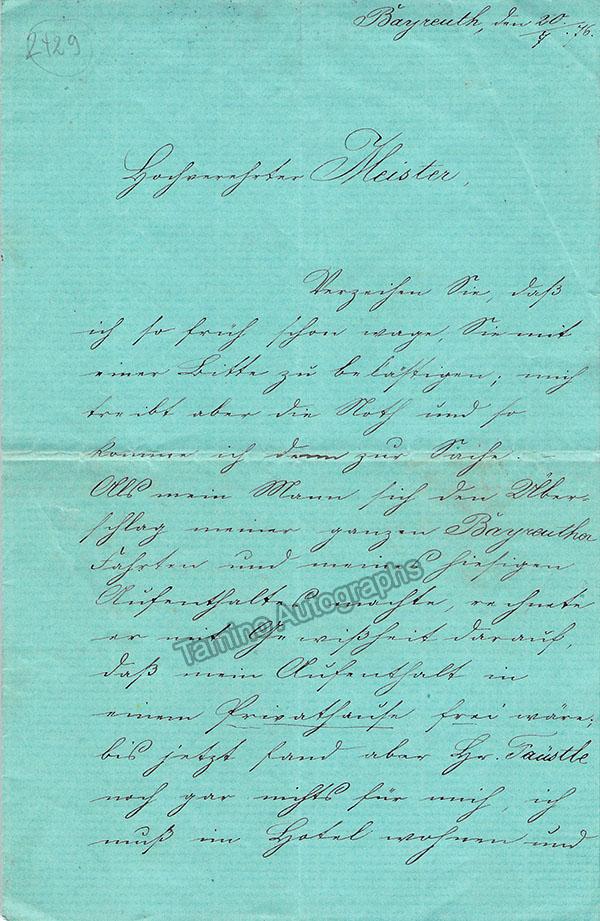 2429
Bayreuth, den 20/7. 76.
Hochverehrter Meister,
Verzeihen Sie, daß
ich so früh schon wage, Sie mit
einer Bitte zu belästigen; mich
treibt aber die Noth und so
komme ich denn zur Sache. –
Als mein Mann sich den Über-
schlag meiner ganzen Bayreuther
Fahrten und meines hiesigen
Aufenthaltes machte, rechnete
er mit Gewißheit darauf,
daß mein Aufenthalt in
einem Privathause frei wäre.
bis jetzt fand aber Hr. Faüstle
noch gar nichts für mich, ich
muß im Hotel wohnen und
Tamino Autographs